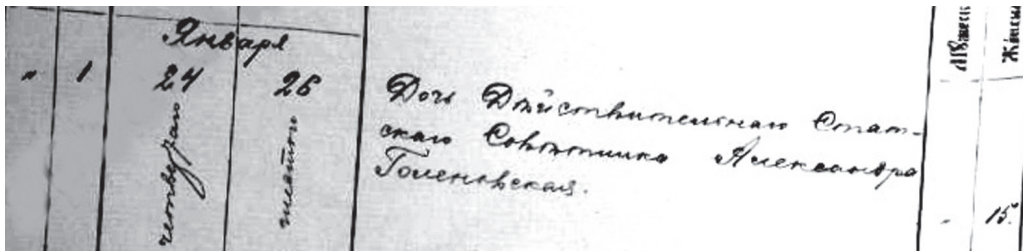 Января
" 1 24 26
четвертаго шестаго
Дочь Дѣйствительнаго Стат-
скаго Совѣтника Александра
Голеновская.
" 15.